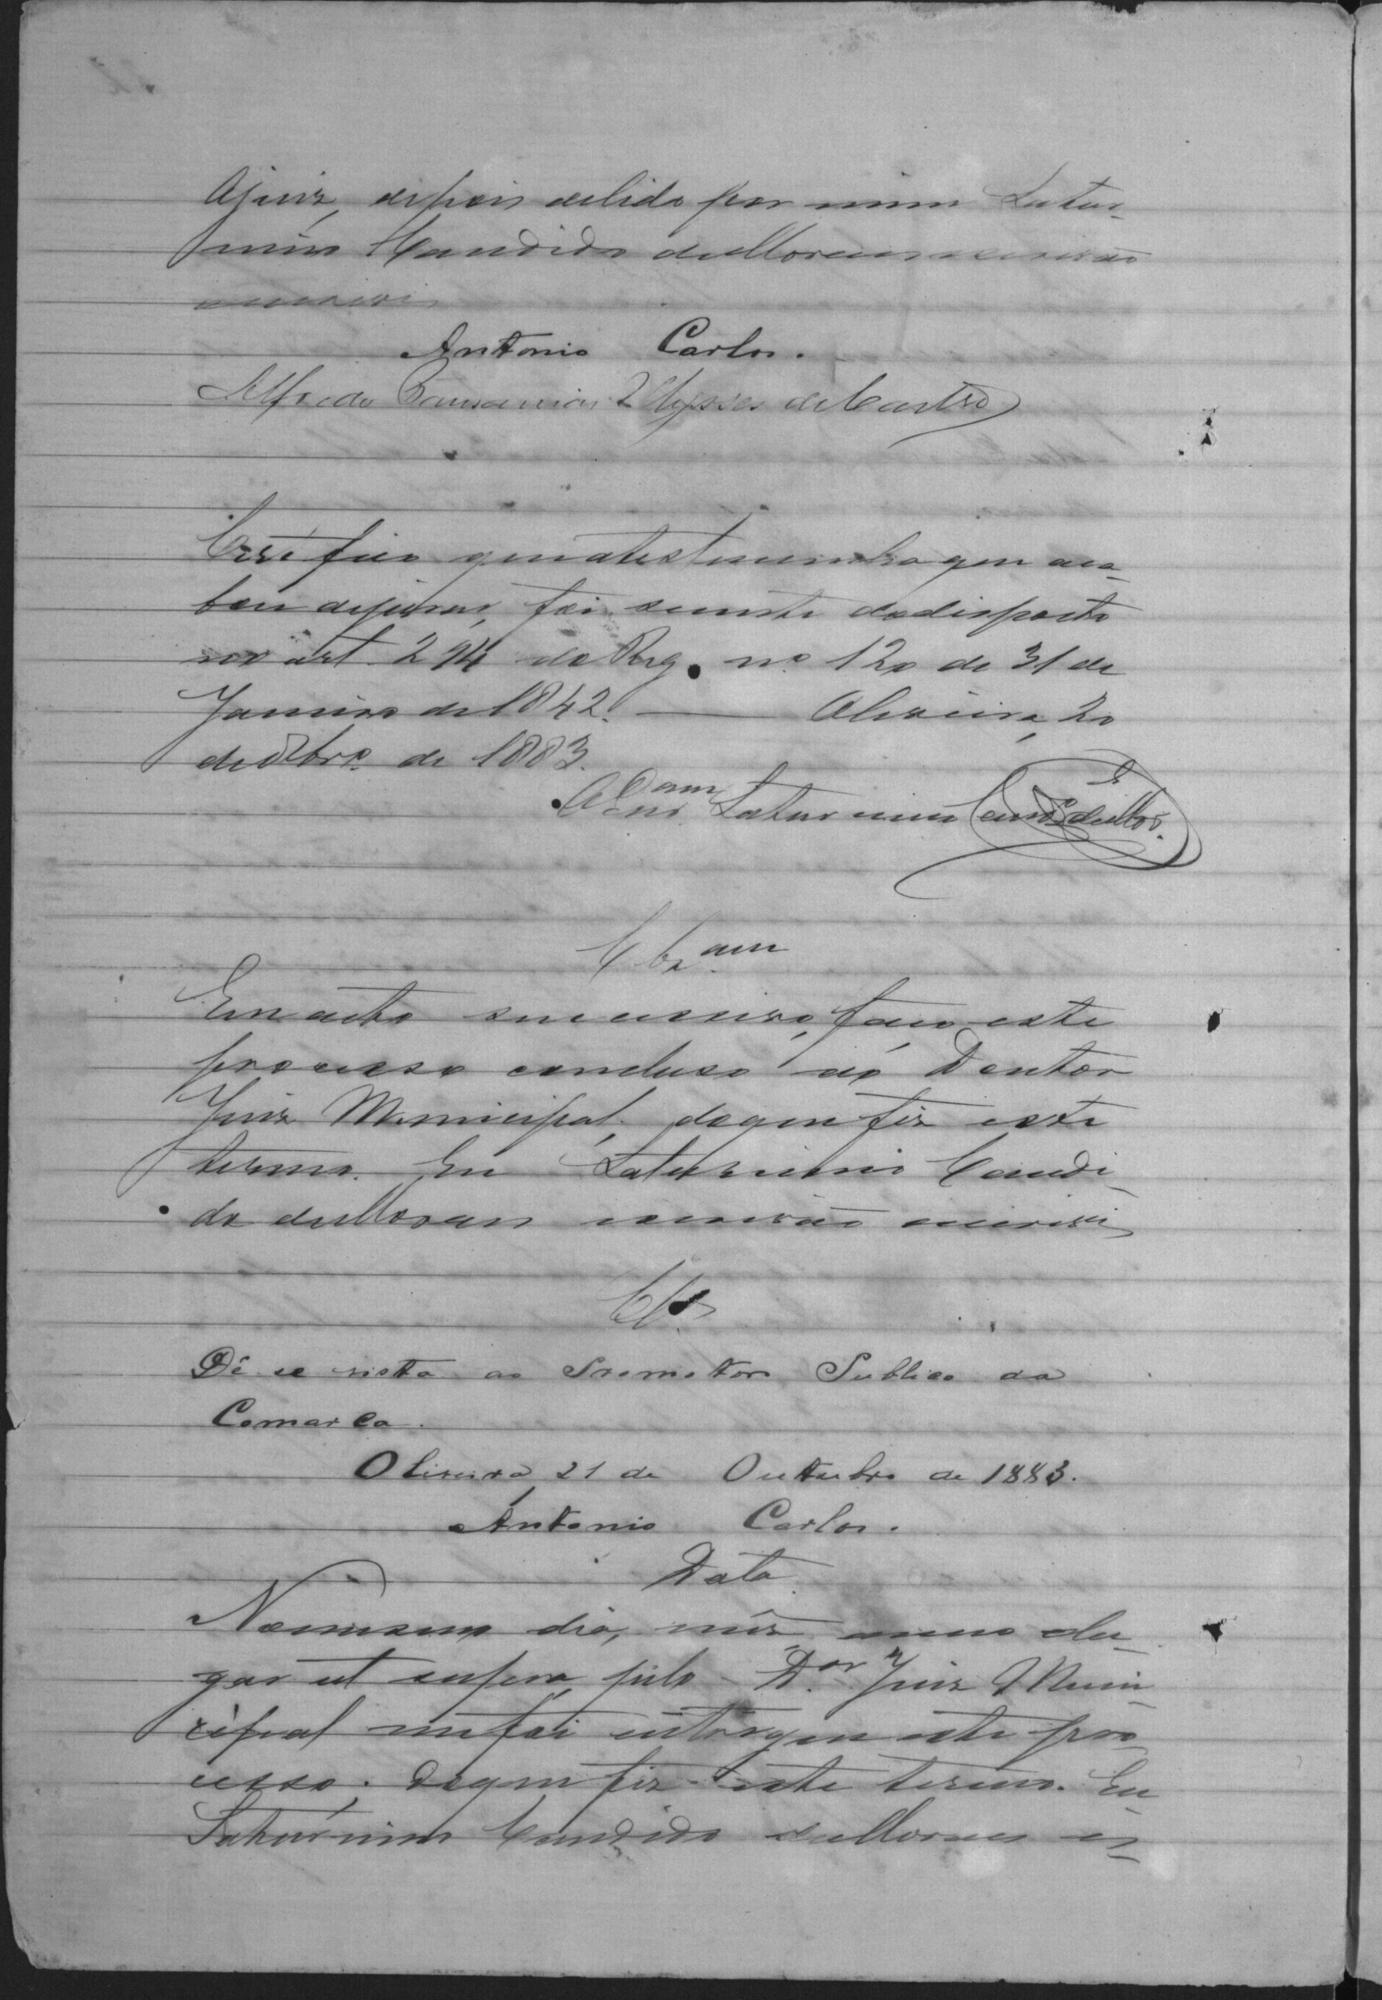 Ojuiz, depois delido por mim Satur-
nino Candido de Moraes escrivão
escrevi
Antonio Carlos.
Alfredo Ulysses de Castro
Certifico que atestemunha que aca-
bou dejurar, foi sciente dodisposto
no art. 294 do Reg. nº 120 de 31 de
Janeiro de 1842. — Oliveira, 20
de 8brº de 1883.
O Esm. Saturnino Cando de Mors.
Clzam
Em acto successivo, faço este
processo concluso ao Doutor
Juiz Municipal, doque fiz este
termo. Eu Saturnino Candi-
do de Moraes escrivão escrevi
Clos
Dê-se vista ao Promotor Publico da
Comarca.
Oliveira, 21 de Outubro de 1883.
Antonio Carlos.
Data
Nomesmo dia, mez, anno elu-
gar ut supra, pelo Dor Juiz Muni-
cipal mefoi entregue este pro-
cesso. Doque fiz este termo. Eu
Saturnino Candido de Moraes es-